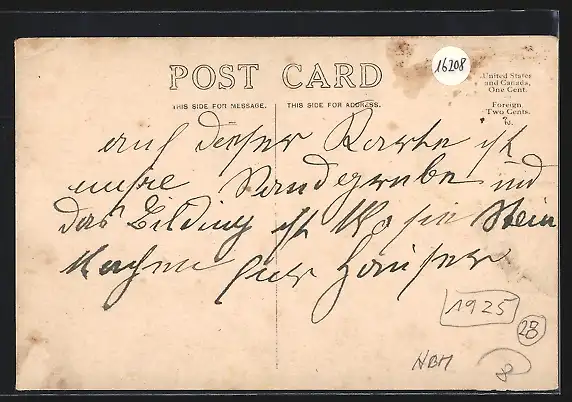 POST CARD
16208
United States
and Canada,
One Cent.
Foreign
Two Cents.
THIS SIDE FOR MESSAGE.
THIS SIDE FOR ADDRESS.
auf dieser Karte ist
unsre Sandegrube und
das Bilding ist Wo sie Stein
Machen fur Häuser
1925
2B
NBM
8